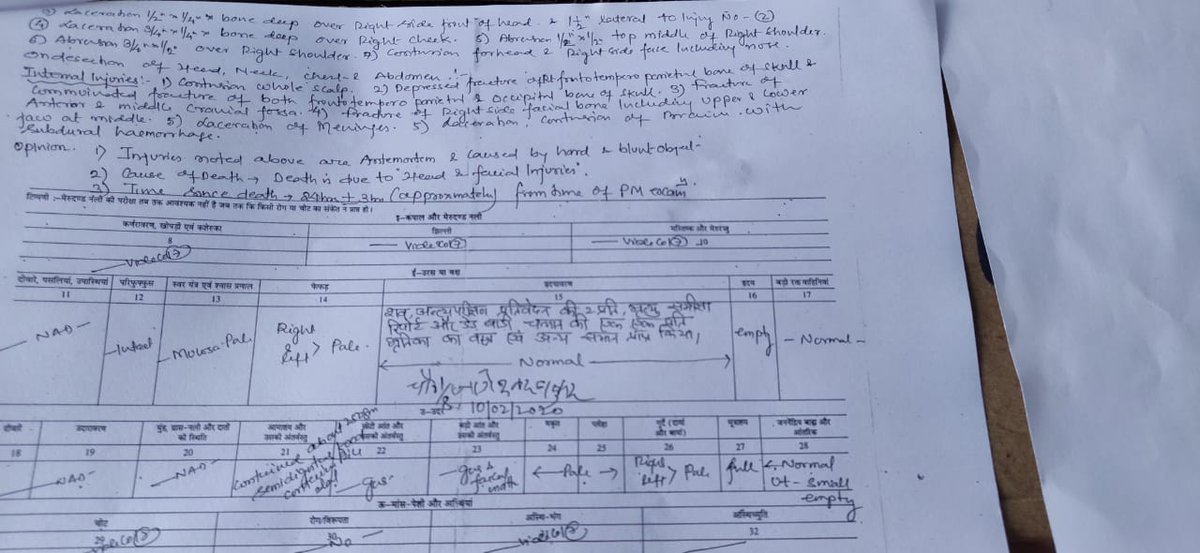 3) Laceration 1/2" x 1/4" x bone deep over Right side front of head. & 1 1/2" lateral to Injury No - (2)
(4) Laceration 3/4" x 1/4" x bone deep over Right cheek. 5) Abrasion 1/2" x 1/2" top middle of Right shoulder.
6) Abrasion 3/4" x 1/2" over Right shoulder. 7) Contusion forhead & Right side face Including nose.
Ondesection of Head, Neck, chest & Abdomen :-
Internal Injuries :- 1) Contusion whole scalp. 2) Depressed fracture of Rt frontotempero parietal bone of skull &
Commuinated fracture of both frontotempero parietal & occipital bone of skull. 3) fracture of
Anterior & middle cranial fossa. 4) fracture of Right side facial bone Including upper & Lower
jaw at middle. 5) Laceration of Meninges. 5) Laceration, contusion of Brain with
subdural haemorrhage.
Opinion. 1) Injuries noted above are Antemortem & caused by hard & blunt object
2) Cause of Death → Death is due to Head & facial Injuries.
3) Time since death → 24hrs ± 3hrs (approximately) from time of PM exam
टिप्पणी :-मेरुदण्ड नली की परीक्षा तब तक आवश्यक नहीं है जब तक कि किसी रोग या चोट का संकेत न प्राप्त हो।
इ-कपाल और मेरुदण्ड नली
कर्परावरण, खोपड़ी एवं कशेरुका झिल्ली मस्तिष्क और मेरुरज्जु
8 10
Vide Col (7) Vide Col (7) Vide Col (7)
ई-उरस या वक्ष
दीवारें, पसलियां, उपास्थियां परिफुफ्फुस स्वर यंत्र एवं श्वास प्रणाल फेफड़े हृदयावरण हृदय बड़ी रक्त वाहिनियां
11 12 13 14 15 16 17
शव, अन्त्यपरीक्षण प्रतिवेदन की 2 प्रति, मृत्यु समीक्षा
रिपोर्ट और डेड बाडी चलान की प्रति
मृतिका का वस्त्र एवं अन्य सामान प्राप्त किया।
NAD Intact Mucosa-Pale Right & left > Pale. Normal empty - Normal -
10/02/2020
उ-उदर
दीवारें उदरावरण मुंह, ग्रास-नली और दातों की स्थिति आमाशय और उसकी अंतर्वस्तु छोटी आंत और उसकी अंतर्वस्तु बड़ी आंत और उसकी अंतर्वस्तु यकृत प्लीहा गुर्दे (दायां और बायां) मूत्राशय जननेंद्रिय बाह्य और आंतरिक
18 19 20 21 22 23 24 25 26 27 28
NAD NAD contained about semidigested food gus gus & faecal math Pale Right left > Pale full Normal Ut - small empty
ऊ-मांस-पेशी और अस्थियां
चोट रोग/विरूपता अस्थि-भंग अस्थिच्युति
29 30 32
Vide Col (7) No Vide Col (7)